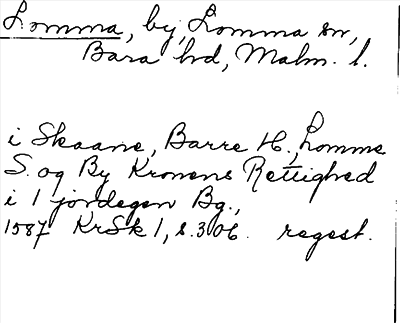 Lomma, by, Lomma sn,
Bara hd, Malm. l.
i Skaane, Barre H., Lomme
S. og By Kronens Rettighed
i 1 jordegen Bg.,
1587 KrSk 1, s. 306. regest.